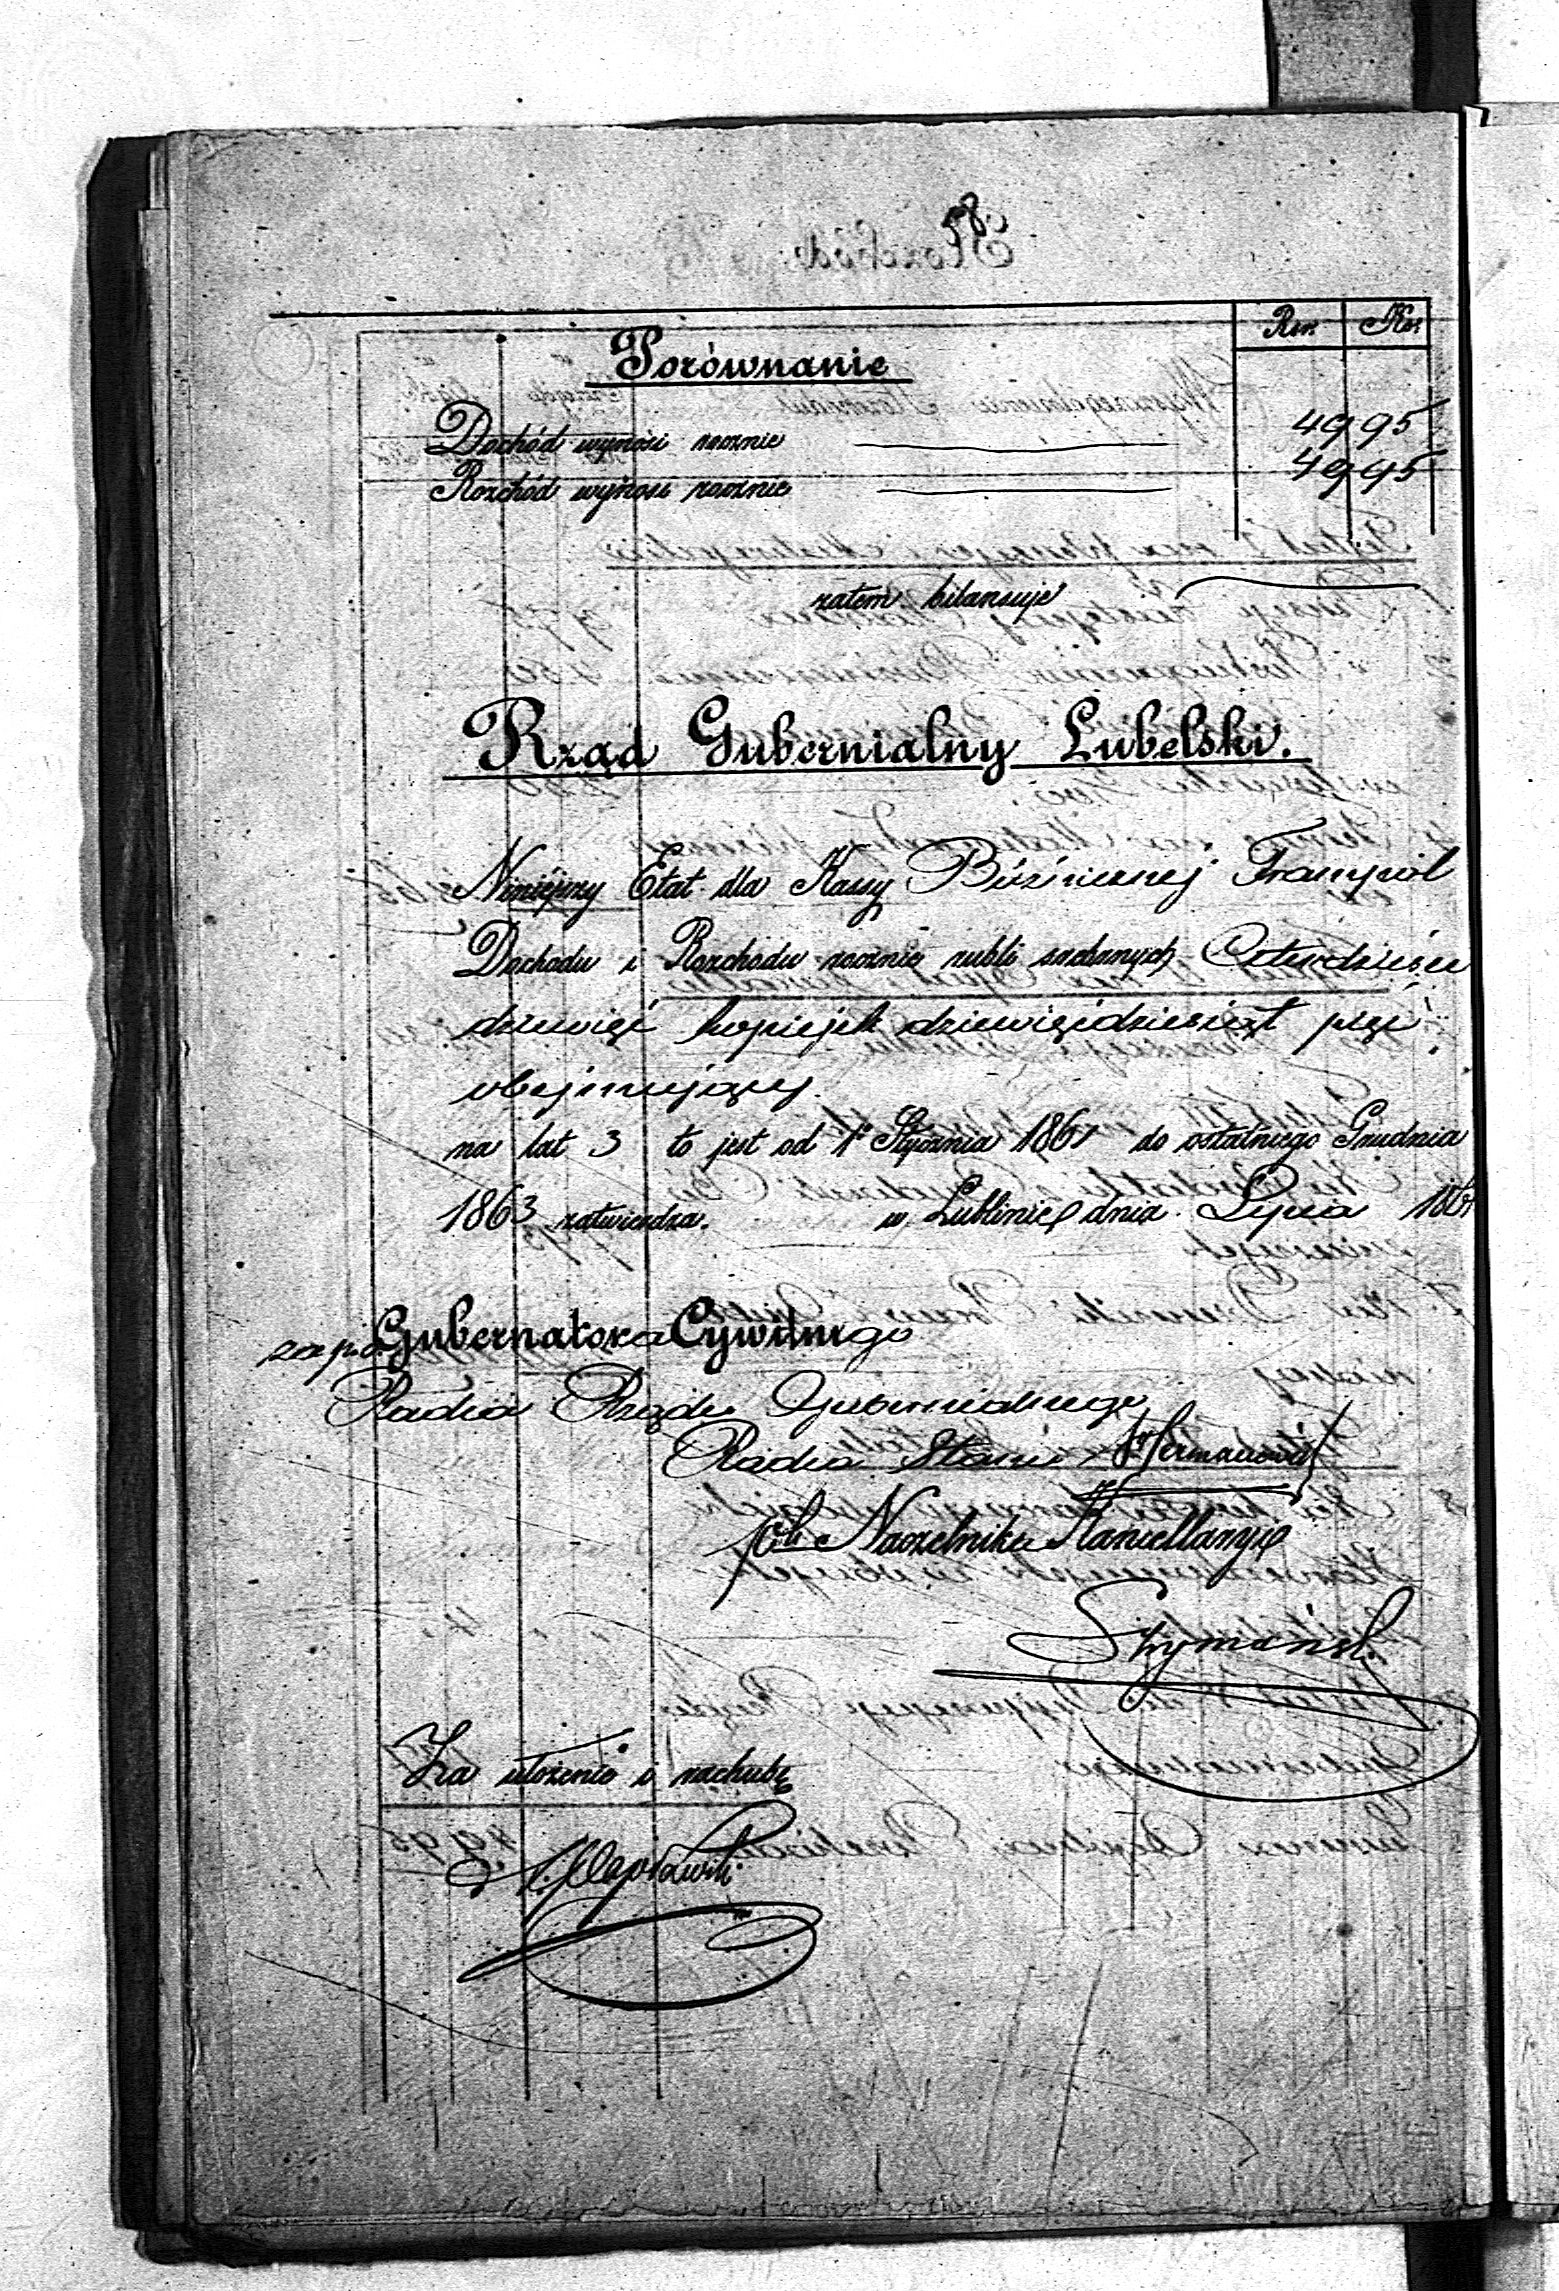 Rsr. Kor.
Porównanie
Dochód wynosi rocznie 49 95
Rozchód wynosi rocznie 49 95
zatem bilansuje
Rząd Gubernialny Lubelski.
Niniejszy Etat dla Kassy Bóżnicznej Frampol
Dochodu i Rozchodu rocznie rubli srebrnych Czterdzieści
dziewięć kopiejek dziewięćdziesiąt pięć
obejmujący.
na lat 3 to jest od 1 Stycznia 1861 do ostatniego Grudnia
1863 zatwierdza. w Lublinie dnia Lipca 1861
za p.o. Gubernatora Cywilnego
Radca Rządu Gubernialnego
Radca Stanu
Naczelnika Kancellaryi
Szymański
Za ułożenie i rachubę